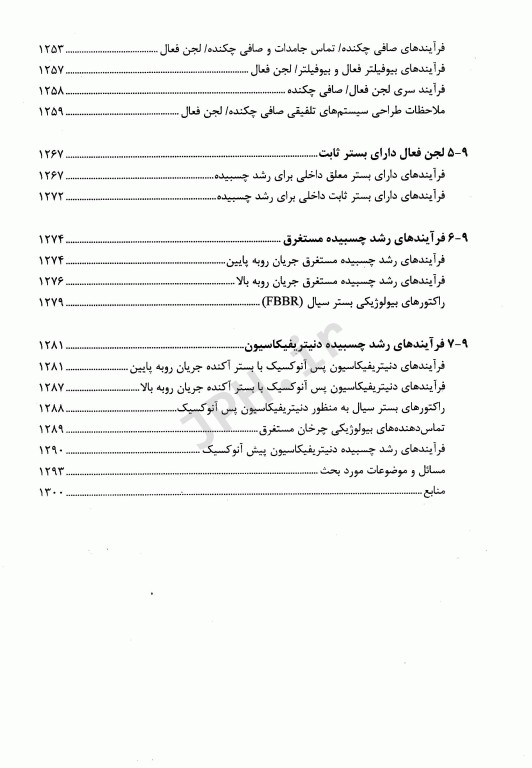 فرآیندهای صافی چکنده/ تماس جامدات و صافی چکنده/ لجن فعال ۱۲۵۳
فرآیندهای بیوفیلتر فعال و بیوفیلتر/ لجن فعال ۱۲۵۷
فرآیند سری لجن فعال/ صافی چکنده ۱۲۵۸
ملاحظات طراحی سیستم‌های تلفیقی صافی چکنده/ لجن فعال ۱۲۵۹
۹-۵ لجن فعال دارای بستر ثابت ۱۲۶۷
فرآیندهای دارای بستر معلق داخلی برای رشد چسبیده ۱۲۶۷
فرآیندهای دارای بستر ثابت داخلی برای رشد چسبیده ۱۲۷۲
۹-۶ فرآیندهای رشد چسبیده مستغرق ۱۲۷۴
فرآیندهای رشد چسبیده مستغرق جریان روبه پایین ۱۲۷۴
فرآیندهای رشد چسبیده مستغرق جریان روبه بالا ۱۲۷۶
راکتورهای بیولوژیکی بستر سیال (FBBR) ۱۲۷۹
۹-۷ فرآیندهای رشد چسبیده دنیتریفیکاسیون ۱۲۸۱
فرآیندهای دنیتریفیکاسیون پس آنوکسیک با بستر آکنده جریان روبه پایین ۱۲۸۱
فرآیندهای دنیتریفیکاسیون پس آنوکسیک با بستر آکنده جریان روبه بالا ۱۲۸۷
راکتورهای بستر سیال به منظور دنیتریفیکاسیون پس آنوکسیک ۱۲۸۸
تماس‌دهنده‌های بیولوژیکی چرخان مستغرق ۱۲۸۹
فرآیندهای رشد چسبیده دنیتریفیکاسیون پیش آنوکسیک ۱۲۹۰
مسائل و موضوعات مورد بحث ۱۲۹۳
منابع ۱۳۰۰
JPH.ir